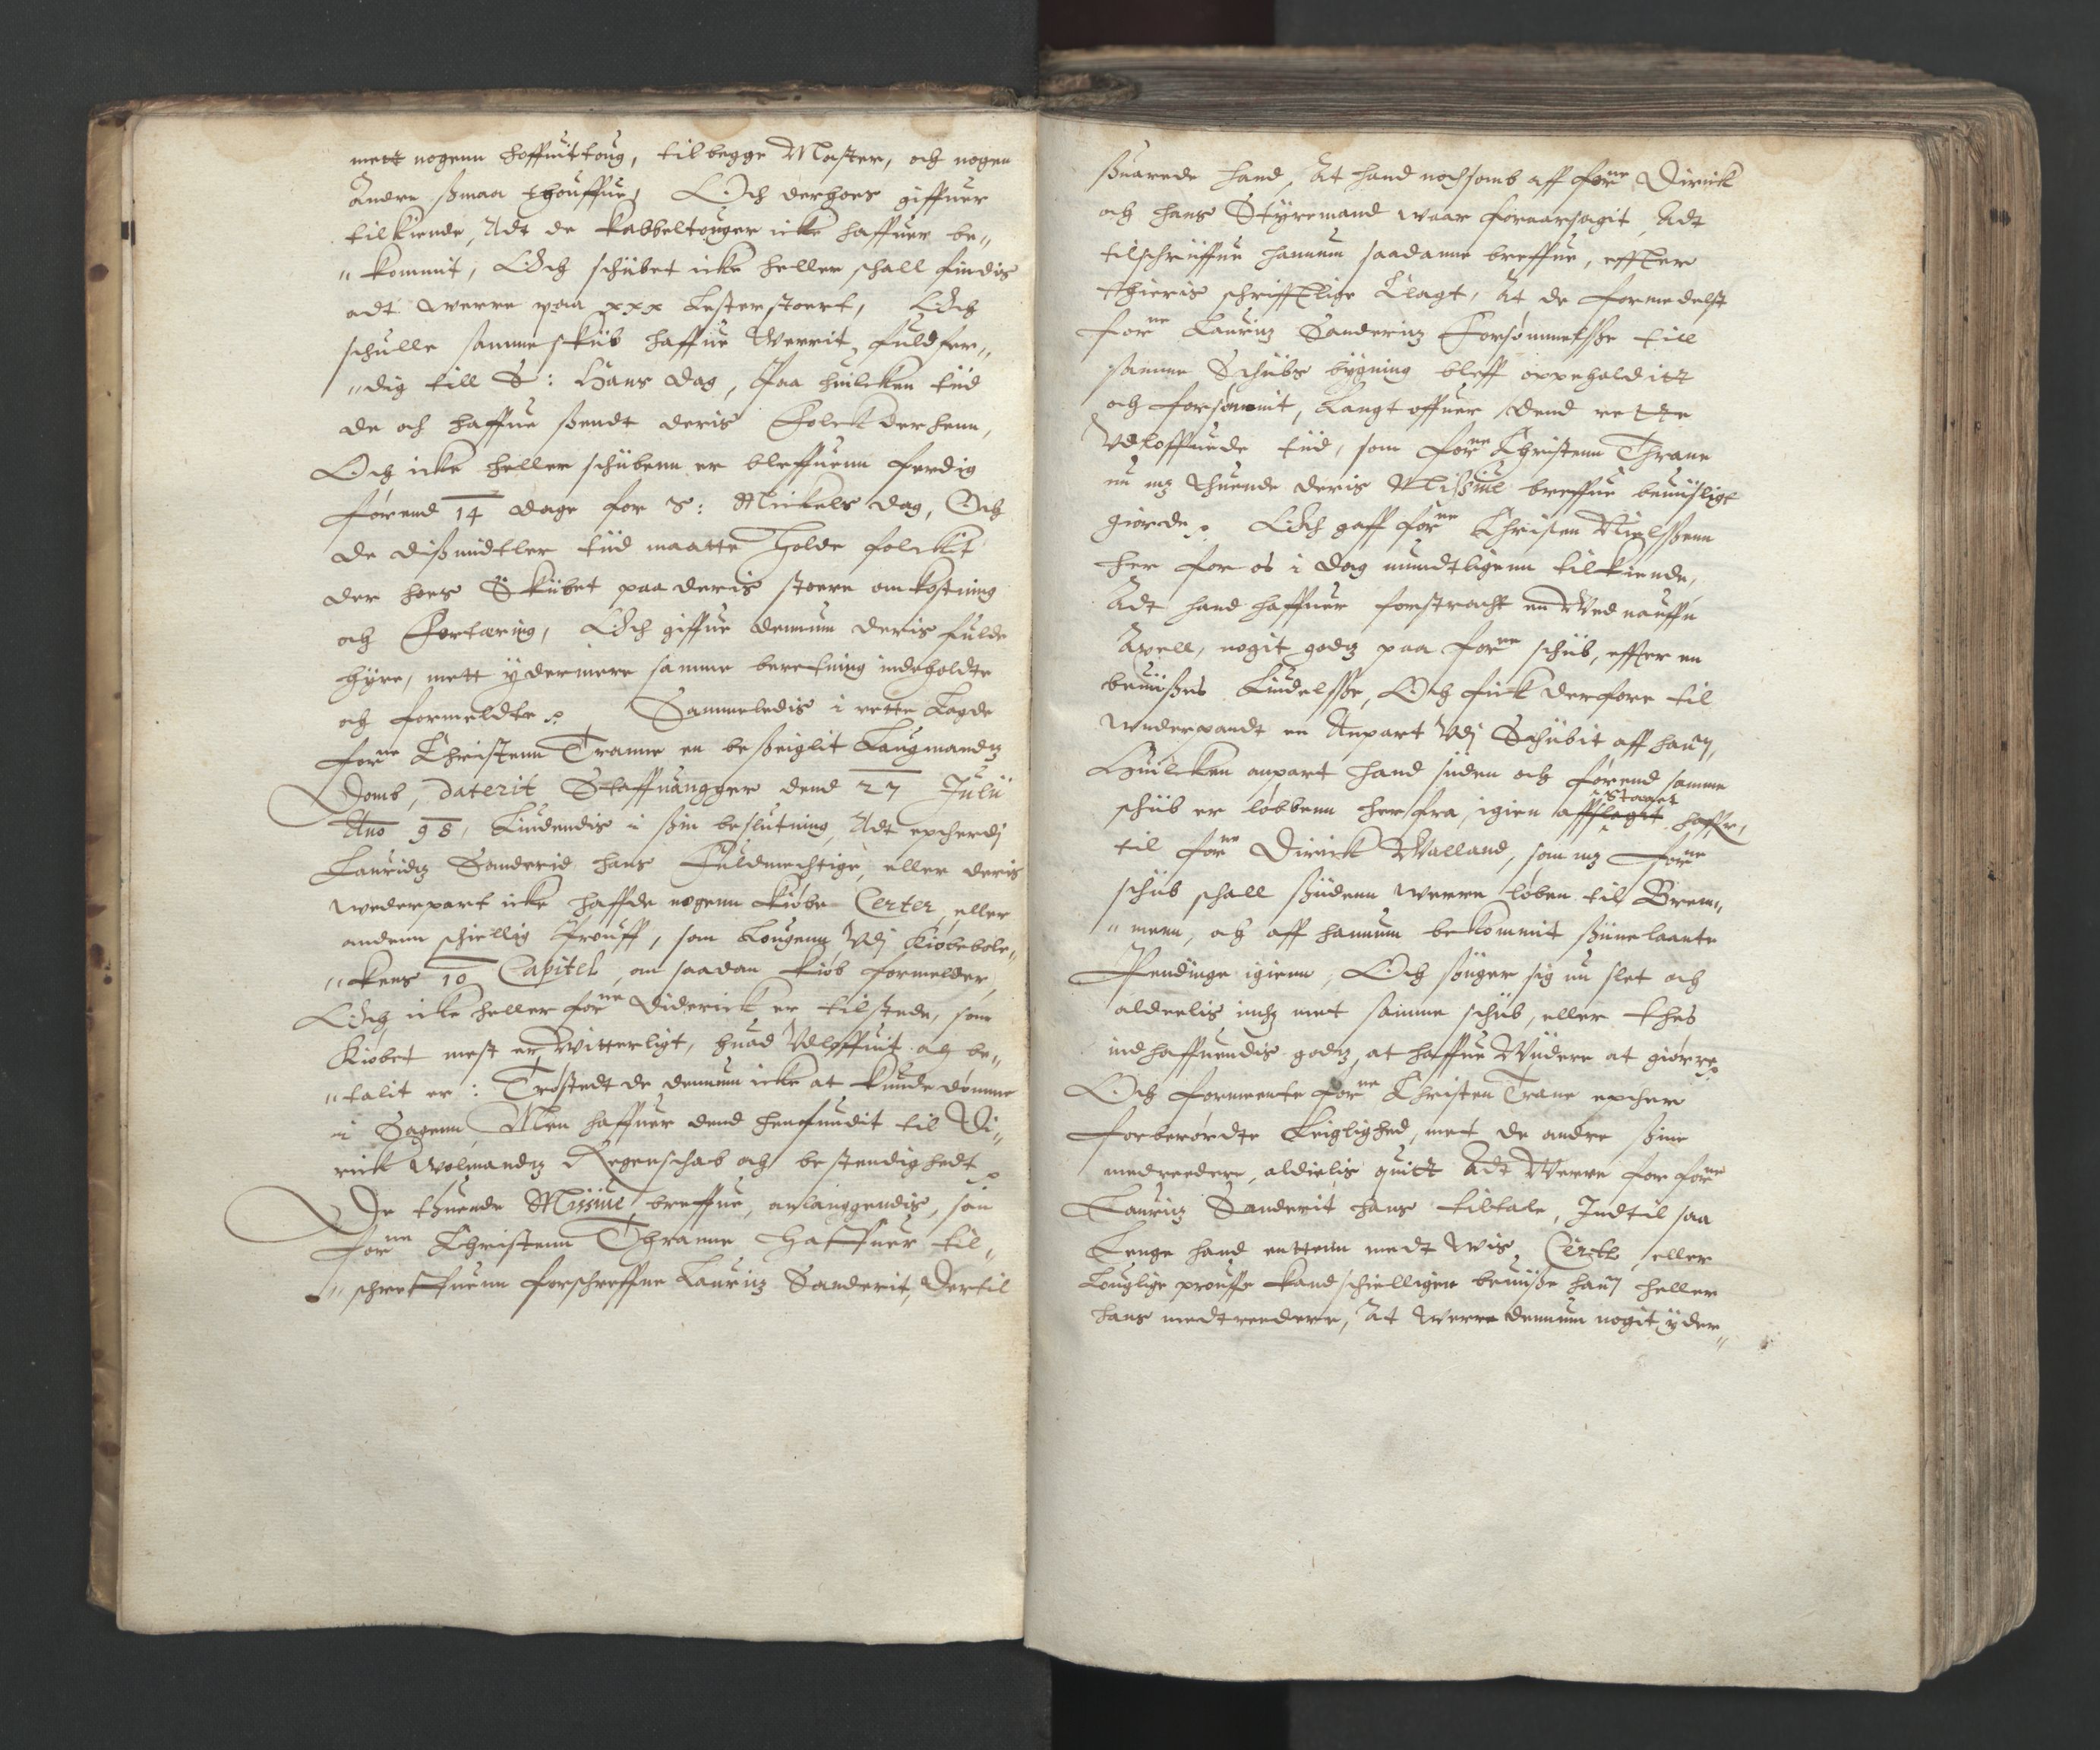 mett nogenn hoffuittoug, til begge Master, och nogen
Andre smaa thouffue, Och derhoes giffuer
tilkiende, Adt de kabbeltouger icke haffuer be„
„kommit, Och schibet icke heller schall findis
adt werre paa xxx Lester stoert, Och
schulle samme skiib haffue Werrit fuldfer„
„dig till S: Hans dag, Paa huilcken tiid
de och haffue sendt deris Folck der henn,
Och icke heller schibenn er bleffuenn ferdig
førend 14 dage for S: Mickels dag, Och
de dismidtler tiid maatte holde folckit
der hoes Skibet paa deris stoere omkostning
och Forteering, Och giffue dennum deris fulde
hyre, mett ydermere samme beretning indeholdte
och formeldte. Sammeledis i rette Lagde
forne Christenn Tranne en beseiglit Laugmandz
Domb, Daterit Staffuangger dend 27 Julii
Ano 98, Liudendis i siin beslutning, Adt epcherdj
Lauridz Sanderid hans fuldmechtige, eller deris
wederpart icke haffde nogenn kiøbe Certer, eller
andenn schiellig Prouff, som Lougenn Vdj Kiøbebole„
„kens 10 Capitel, om saadan kiøb formelder,
Och icke heller forne Diderick er tilstede, som
Kiøbet mest er Witterligt, huad Vdloffuit och be„
„talit er: Trøstedt de dennum icke at kunde dømme
i Sagenn, Men haffuer dend henfundit til Di„
rick Wolmandz Regenschab och bestendighedt
De thuende Missiue breffue, anlanggendis, som
forne Christenn Thranne haffuer til„
„schreffuenn forschreffne Lauridz Sanderit, Dertil
suarede hand, At hand nochsomb aff forne Dirick
och hans Styremand waar foraarsagit, Adt
tilschriffue hannum saadanne breffue, effter
thieris schrifftlige Clagt, At de formedelst
forne Lauridz Sanderidz Forsømmelsse till
samme Schibs bygning bleff oppeholditt
och forsømmit, Langt offuer dend rette
Vdloffuede tiid, som forne Christenn Thrane
nu mz thuende deris Missiue breffue beuiislige
giorde. Och gaff forne Christen Nielssenn
her for os i dag mundtligenn tilkiende,
Adt hand haffuer forstracht en Wed naffn
Apell, nogit godz paa forne schiib, effter en
beuisses Liudelsse, Och fick derfore til
wnderpandt en Anpart Vdj Schibit aff ham,
Huilcken anpart hand siden och førend samme
schiib er løbbenn her fra, igien affstaaet haffr,
til forne Dirick Walland, som mz forne
schiib schall siidenn werre løben til Brem„
„menn, och aff hannum bekommit siine laante
Pendinge igienn, Och siuger sig nu slet och
alderlis inthz met samme schiib, eller thes
indhaffuendis godz, at haffue Wiidere at giørre
Och formeente forne Christen Trane epcher
forberørdte Leiglighed, met de andre sine
medreedere, aldielis quitt Adt Werre for forne
Lauridz Sanderit hans tiltale, Indtil saa
Lenge hand enttenn medt wis Certe, eller
Louglige prouffe kand schielligen beuiisse ham heller
hans medtreedere, At werre dennum nogit yder„